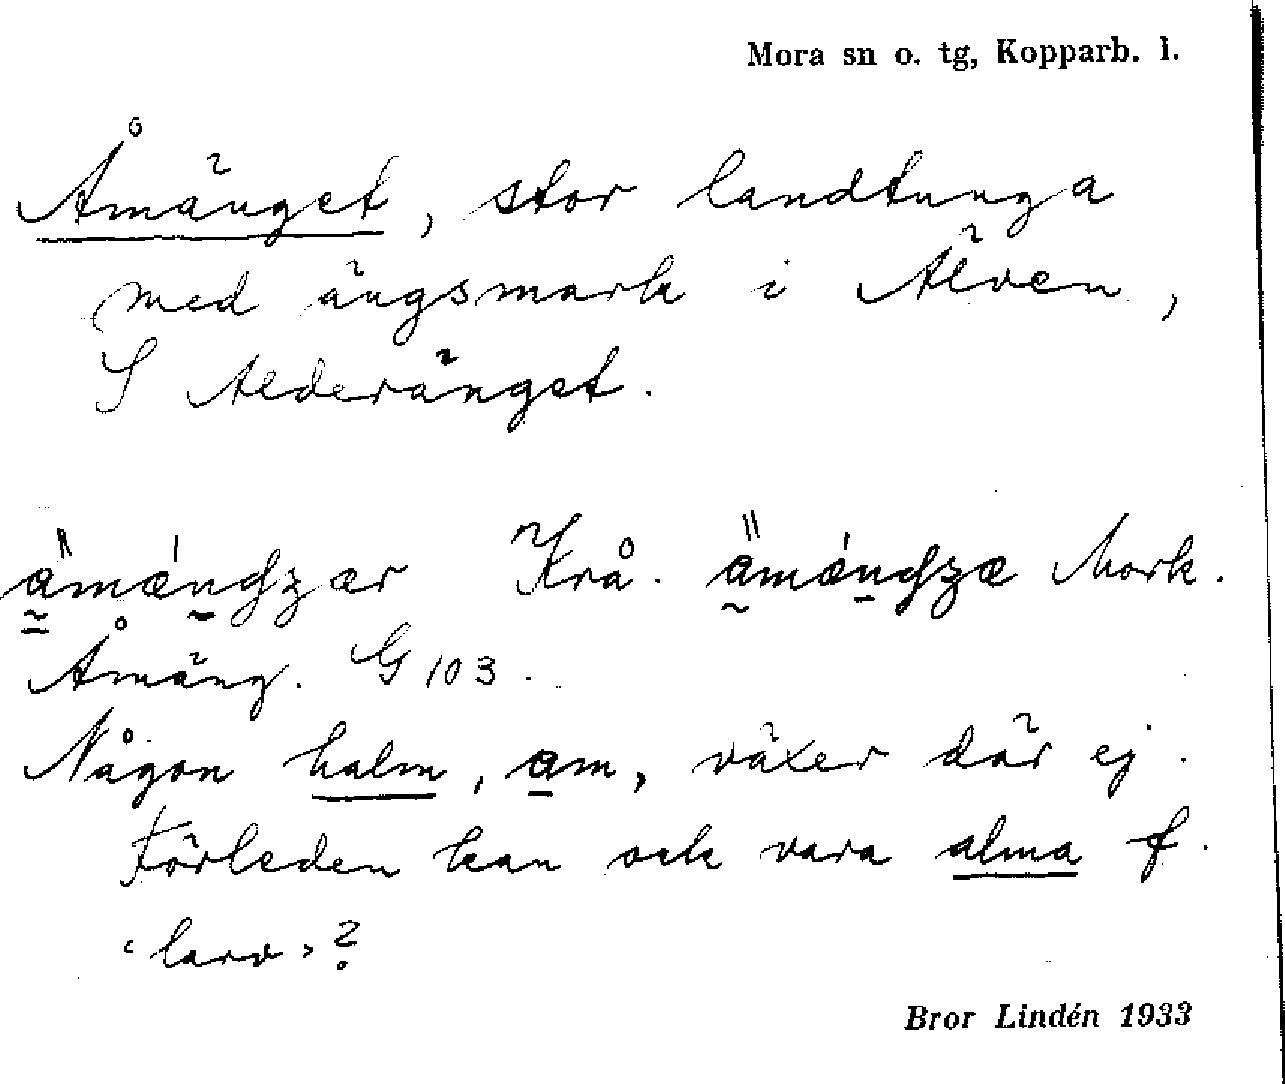 Mora sn o. tg, Kopparb. l.
Åmänget, stor landtunga
med ängsmark i Älven,
S Alderänget.
Krå. Mork.
Åmäng. G 103.
Någon halm, am, växer där ej.
Förleden kan ock vara alma f.
‹larv›?
Bror Lindén 1933